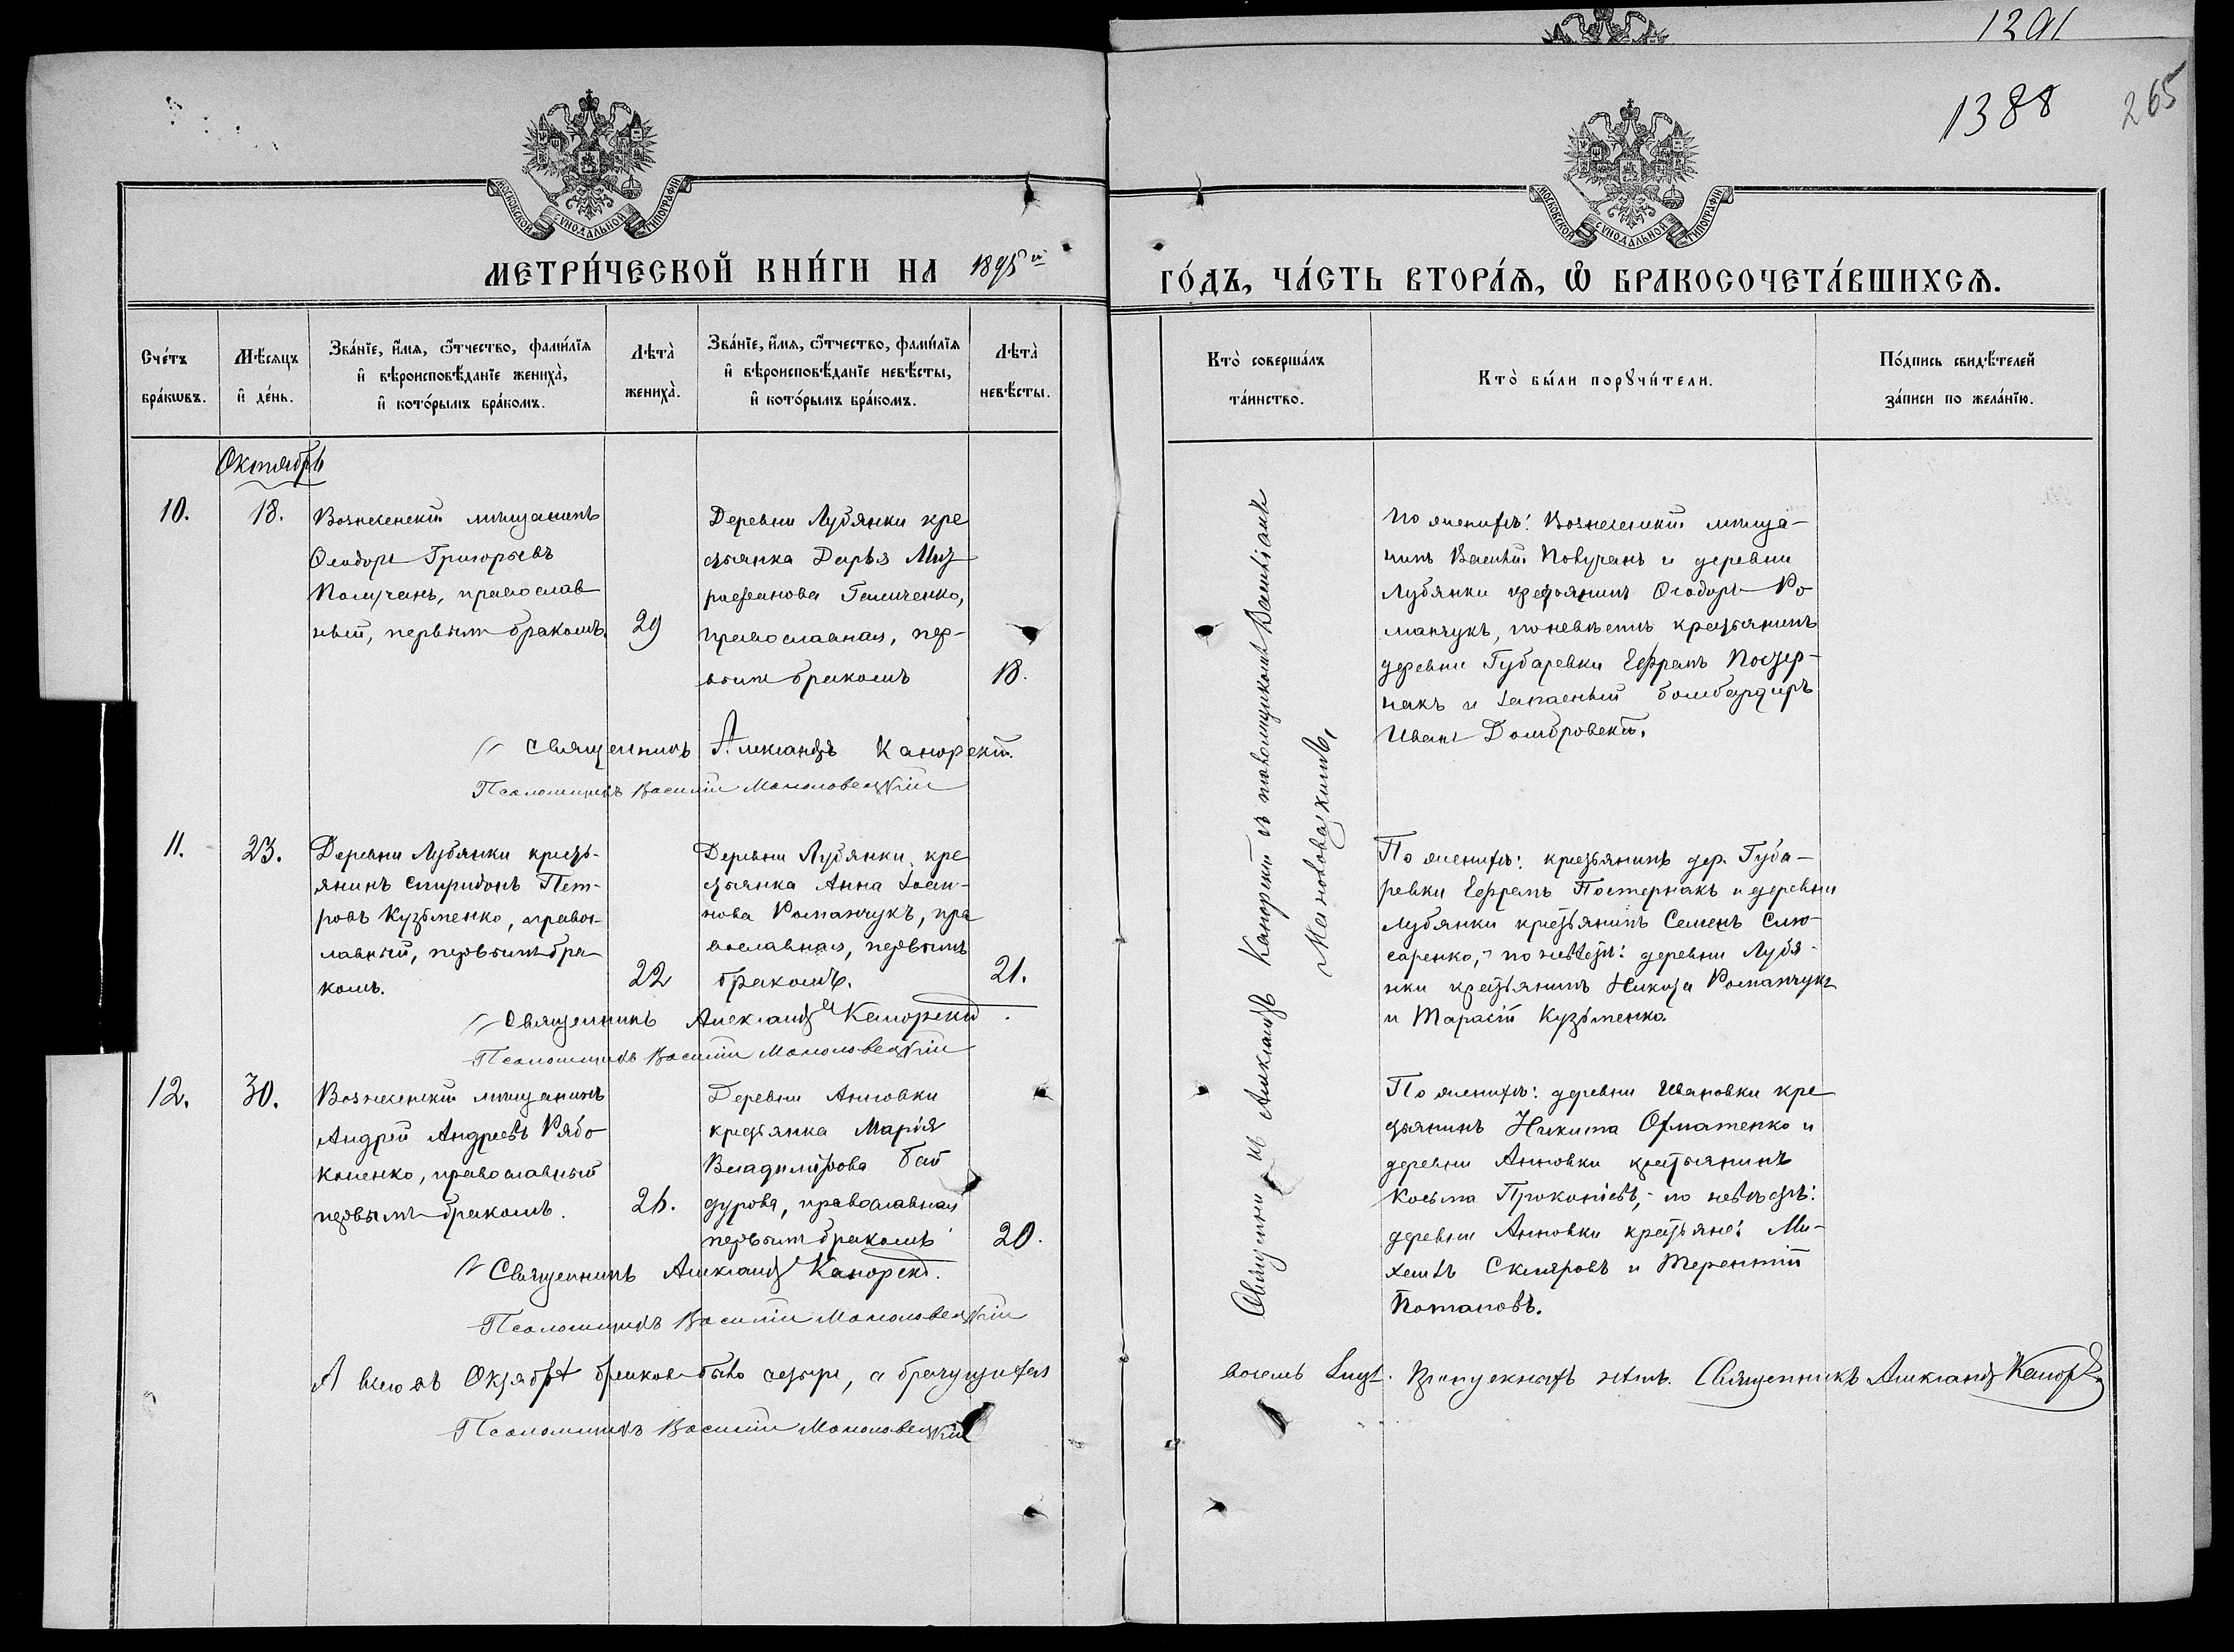 1291
1388
265
МОСКОВСКОЙ СѴНОДАЛЬНОЙ ТИПОГРАФІИ
МОСКОВСКОЙ СѴНОДАЛЬНОЙ ТИПОГРАФІИ
МЕТРИ́ЧЕСКОЙ КНИ́ГИ НА 1895 й
ГО́ДЪ, ЧА́СТЬ ВТОРА́Ѧ, Ѽ БРАКОСОЧЕТА́ВШИХСѦ.
Сче́тъ бра́кѡвъ.
Мѣ́сяцъ и҆ де́нь.
Зва́нїе, и҆́мѧ, ѻ҆́тчество, фами́лїѧ
и҆ вѣроисповѣ́данїе жениха̀,
и҆ кото́рымъ бра́комъ.
Лѣта̀ жениха̀.
Зва́нїе, и҆́мѧ, ѻ҆́тчество, фами́лїѧ
и҆ вѣроисповѣ́данїе невѣ́сты,
и҆ кото́рымъ бра́комъ.
Лѣта̀ невѣ́сты.
Кто̀ соверша́лъ та́инство.
Кто̀ бы́ли порꙋчи́тели.
По́дпись свидѣ́телей
за́писи по жела́нїю.
Октябрь
10.
18.
Вознесенскій мѣщанинъ
Ѳеодоръ Григорьевъ
православ
ный, первымъ бракомъ.
29
Деревни Лубянки кре
стьянка Дарья Мит
рофанова Галиченко,
православная, пер-
вымъ бракомъ
18.
По женихѣ: Вознесенскій мѣща-
нинъ Василій и деревни
Лубянки крестьянинъ Ѳеодоръ Ро
манчукъ, по невѣстѣ крестьянинъ
деревни Губаревки Ефремъ Постер-
накъ и запасный бомбардиръ
Иванъ Домбровскій.
Священникъ Александръ Каморскій.
Псаломщикъ Василій Маноловецкій
11.
23.
Деревни Лубянки кресть-
янинъ Спиридонъ Пет-
ровъ Кузьменко, правос
лавный, первымъ бра
комъ.
22
Деревни Лубянки, кре
стьянка Анна Іоан-
нова Романчукъ, пра
вославная, первымъ
бракомъ.
21.
По женихѣ: крестьянинъ дер. Губа-
ревки Ефремъ Постернакъ и деревни
Лубянки крестьянинъ Семенъ Слю
саренко, - по невѣстѣ: деревни Лубя-
нки крестьянинъ Никита Романчукъ
и Тарасій Кузьменко.
Священникъ Александръ Каморскій.
Псаломщикъ Василій Маноловецкій
12.
30.
Вознесенскій мѣщанинъ
Андрей Андреевъ Рябо
коненко, православный
первымъ бракомъ.
26.
Деревни Анновки
крестьянка Марія
Владимірова Бай
дурова, православная
первымъ бракомъ
20.
По женихѣ: деревни Ивановки кре
стьянинъ Никита Охматенко и
деревни Анновки крестьянинъ
Косьма Прокопіевъ, - по невѣстѣ:
деревни Анновки крестьяне: Ми-
хаилъ Скляровъ и Терентій
Потаповъ.
Священникъ Александръ Каморскій.
Псаломщикъ Василій Маноловецкій
Священникъ Александръ Каморскій съ псаломщикомъ Василіемъ
Маноловецкимъ.
А всего въ Октябрѣ браковъ было четыре, а брачущихся
восемь лицъ. Пропускныхъ нѣтъ. Священникъ Александръ Каморскій
Псаломщикъ Василій Маноловецкій